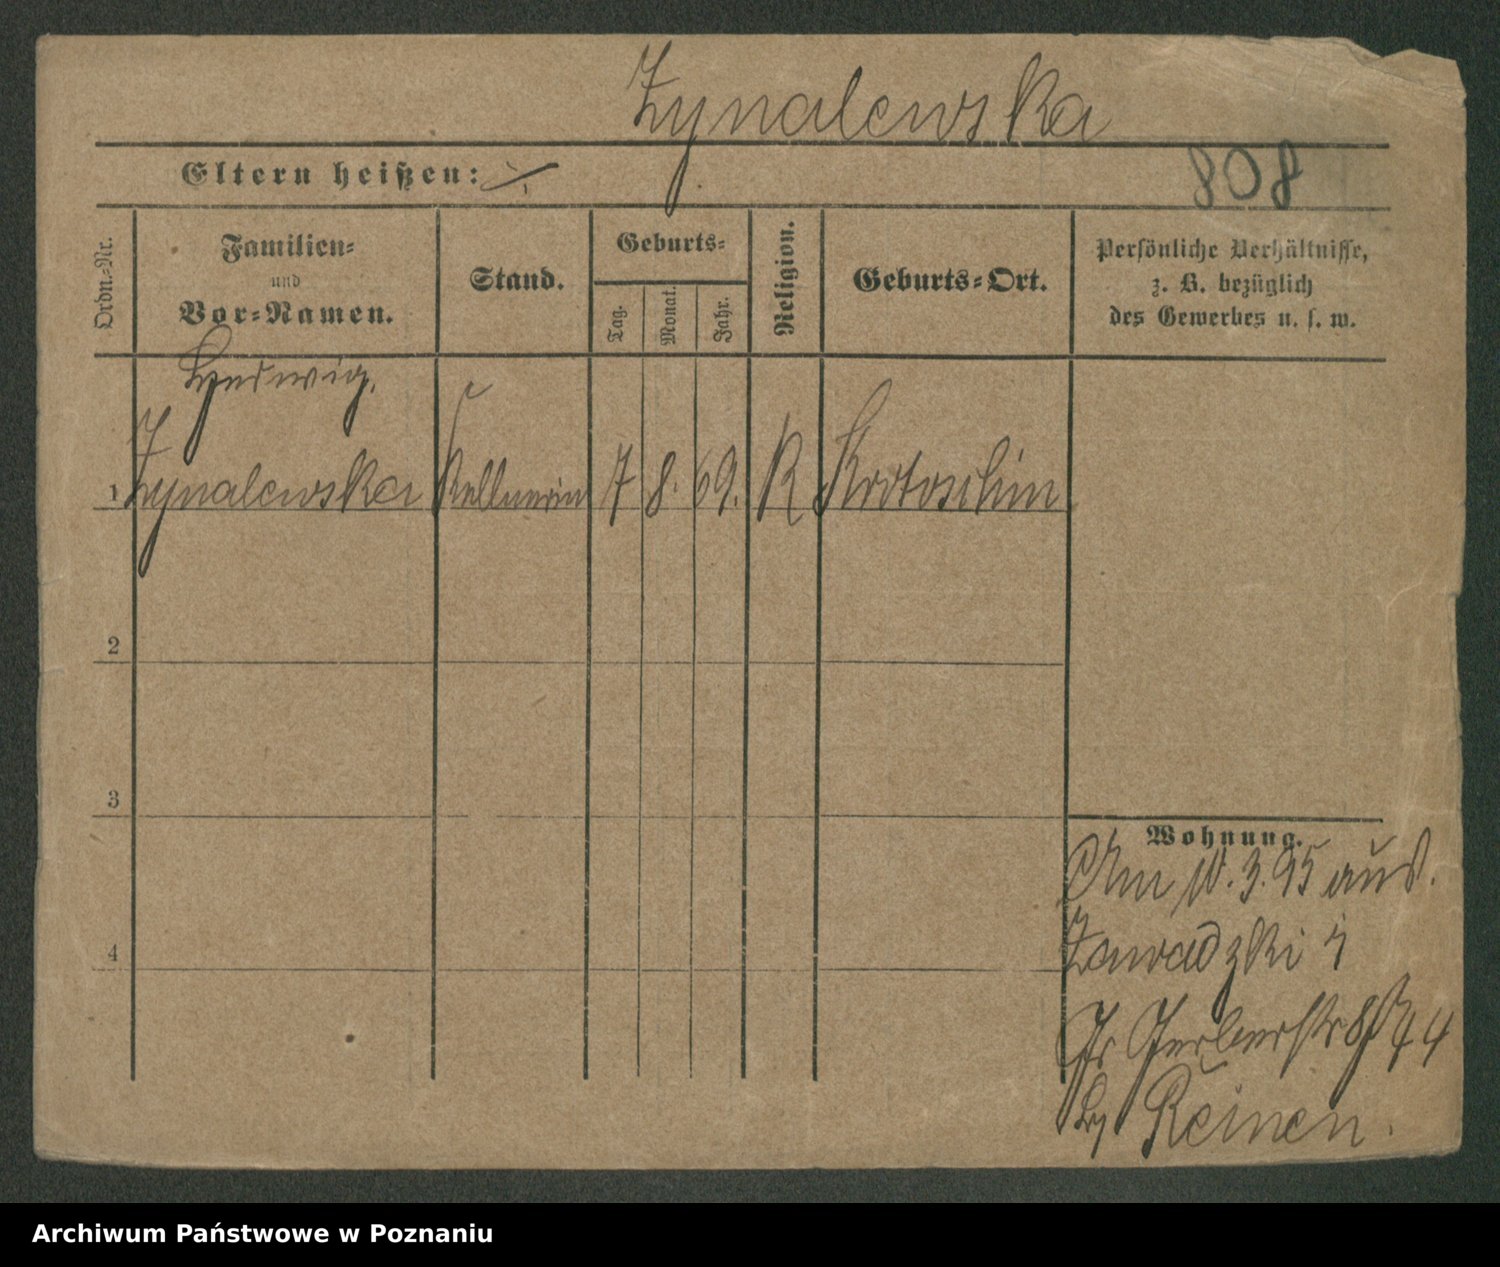 Zynalewska
Eltern heißen: ./.
808
Ordn.-Nr.
Familien-
und
Vor-Namen.
Stand.
Geburts-
Tag.
Monat.
Jahr.
Religion.
Geburts-Ort.
Persönliche Verhältnisse,
z. B. bezüglich
des Gewerbes u. s. w.
Hedwig.
1 Zynalewska Kellnerin 7 8. 69. K Krotoschin
2
3
4
Wohnung.
Am 10.3.95 aus
Zawadzki
Gr Gerberstr
Reinen.
Archiwum Państwowe w Poznaniu